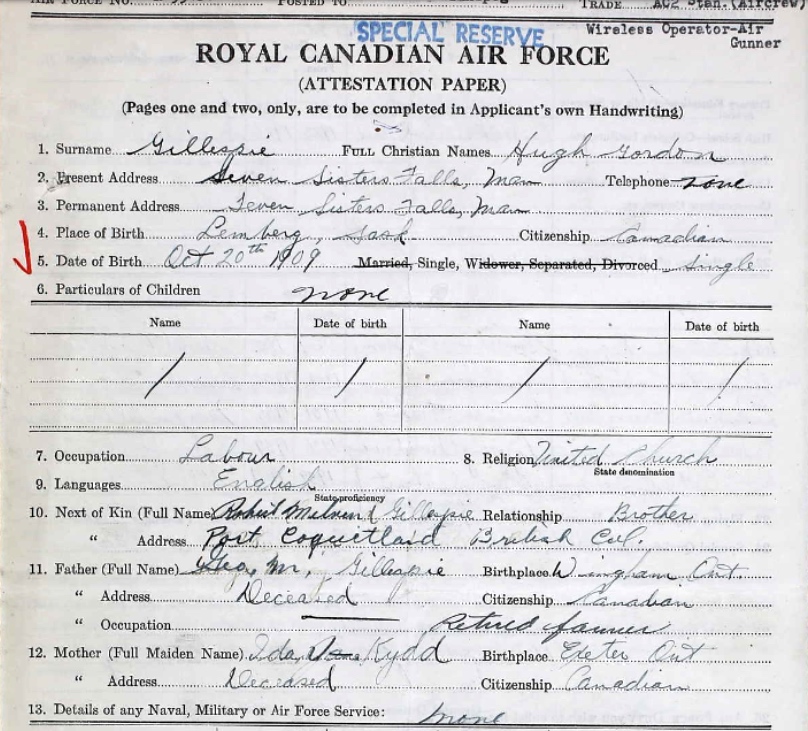 TRADE AC2 Stan. (Aircrew)
SPECIAL RESERVE Wireless Operator-Air
Gunner
ROYAL CANADIAN AIR FORCE
(ATTESTATION PAPER)
(Pages one and two, only, are to be completed in Applicant's own Handwriting)
1. Surname Gillespie FULL Christian Names Hugh Gordon
2. Present Address Seven Sisters Falls, Man Telephone none
3. Permanent Address Seven Sisters Falls, Man
4. Place of Birth Lemberg, Sask Citizenship Canadian
5. Date of Birth Oct 20th 1909 Married, Single, Widower, Separated, Divorced Single
6. Particulars of Children none
Name Date of birth Name Date of birth
/ / / /
7. Occupation Labour 8. Religion United Church
State denomination
9. Languages English
State proficiency
10. Next of Kin (Full Name) Robert Gillespie Relationship Brother
" Address Port Coquitlaid British Col.
11. Father (Full Name) Geo, M, Gillespie Birthplace Wingham Ont.
" Address Deceased Citizenship Canadian
" Occupation Retired farmer
12. Mother (Full Maiden Name) Ida Kydd Birthplace Exeter Ont
" Address Deceased Citizenship Canadian
13. Details of any Naval, Military or Air Force Service: none